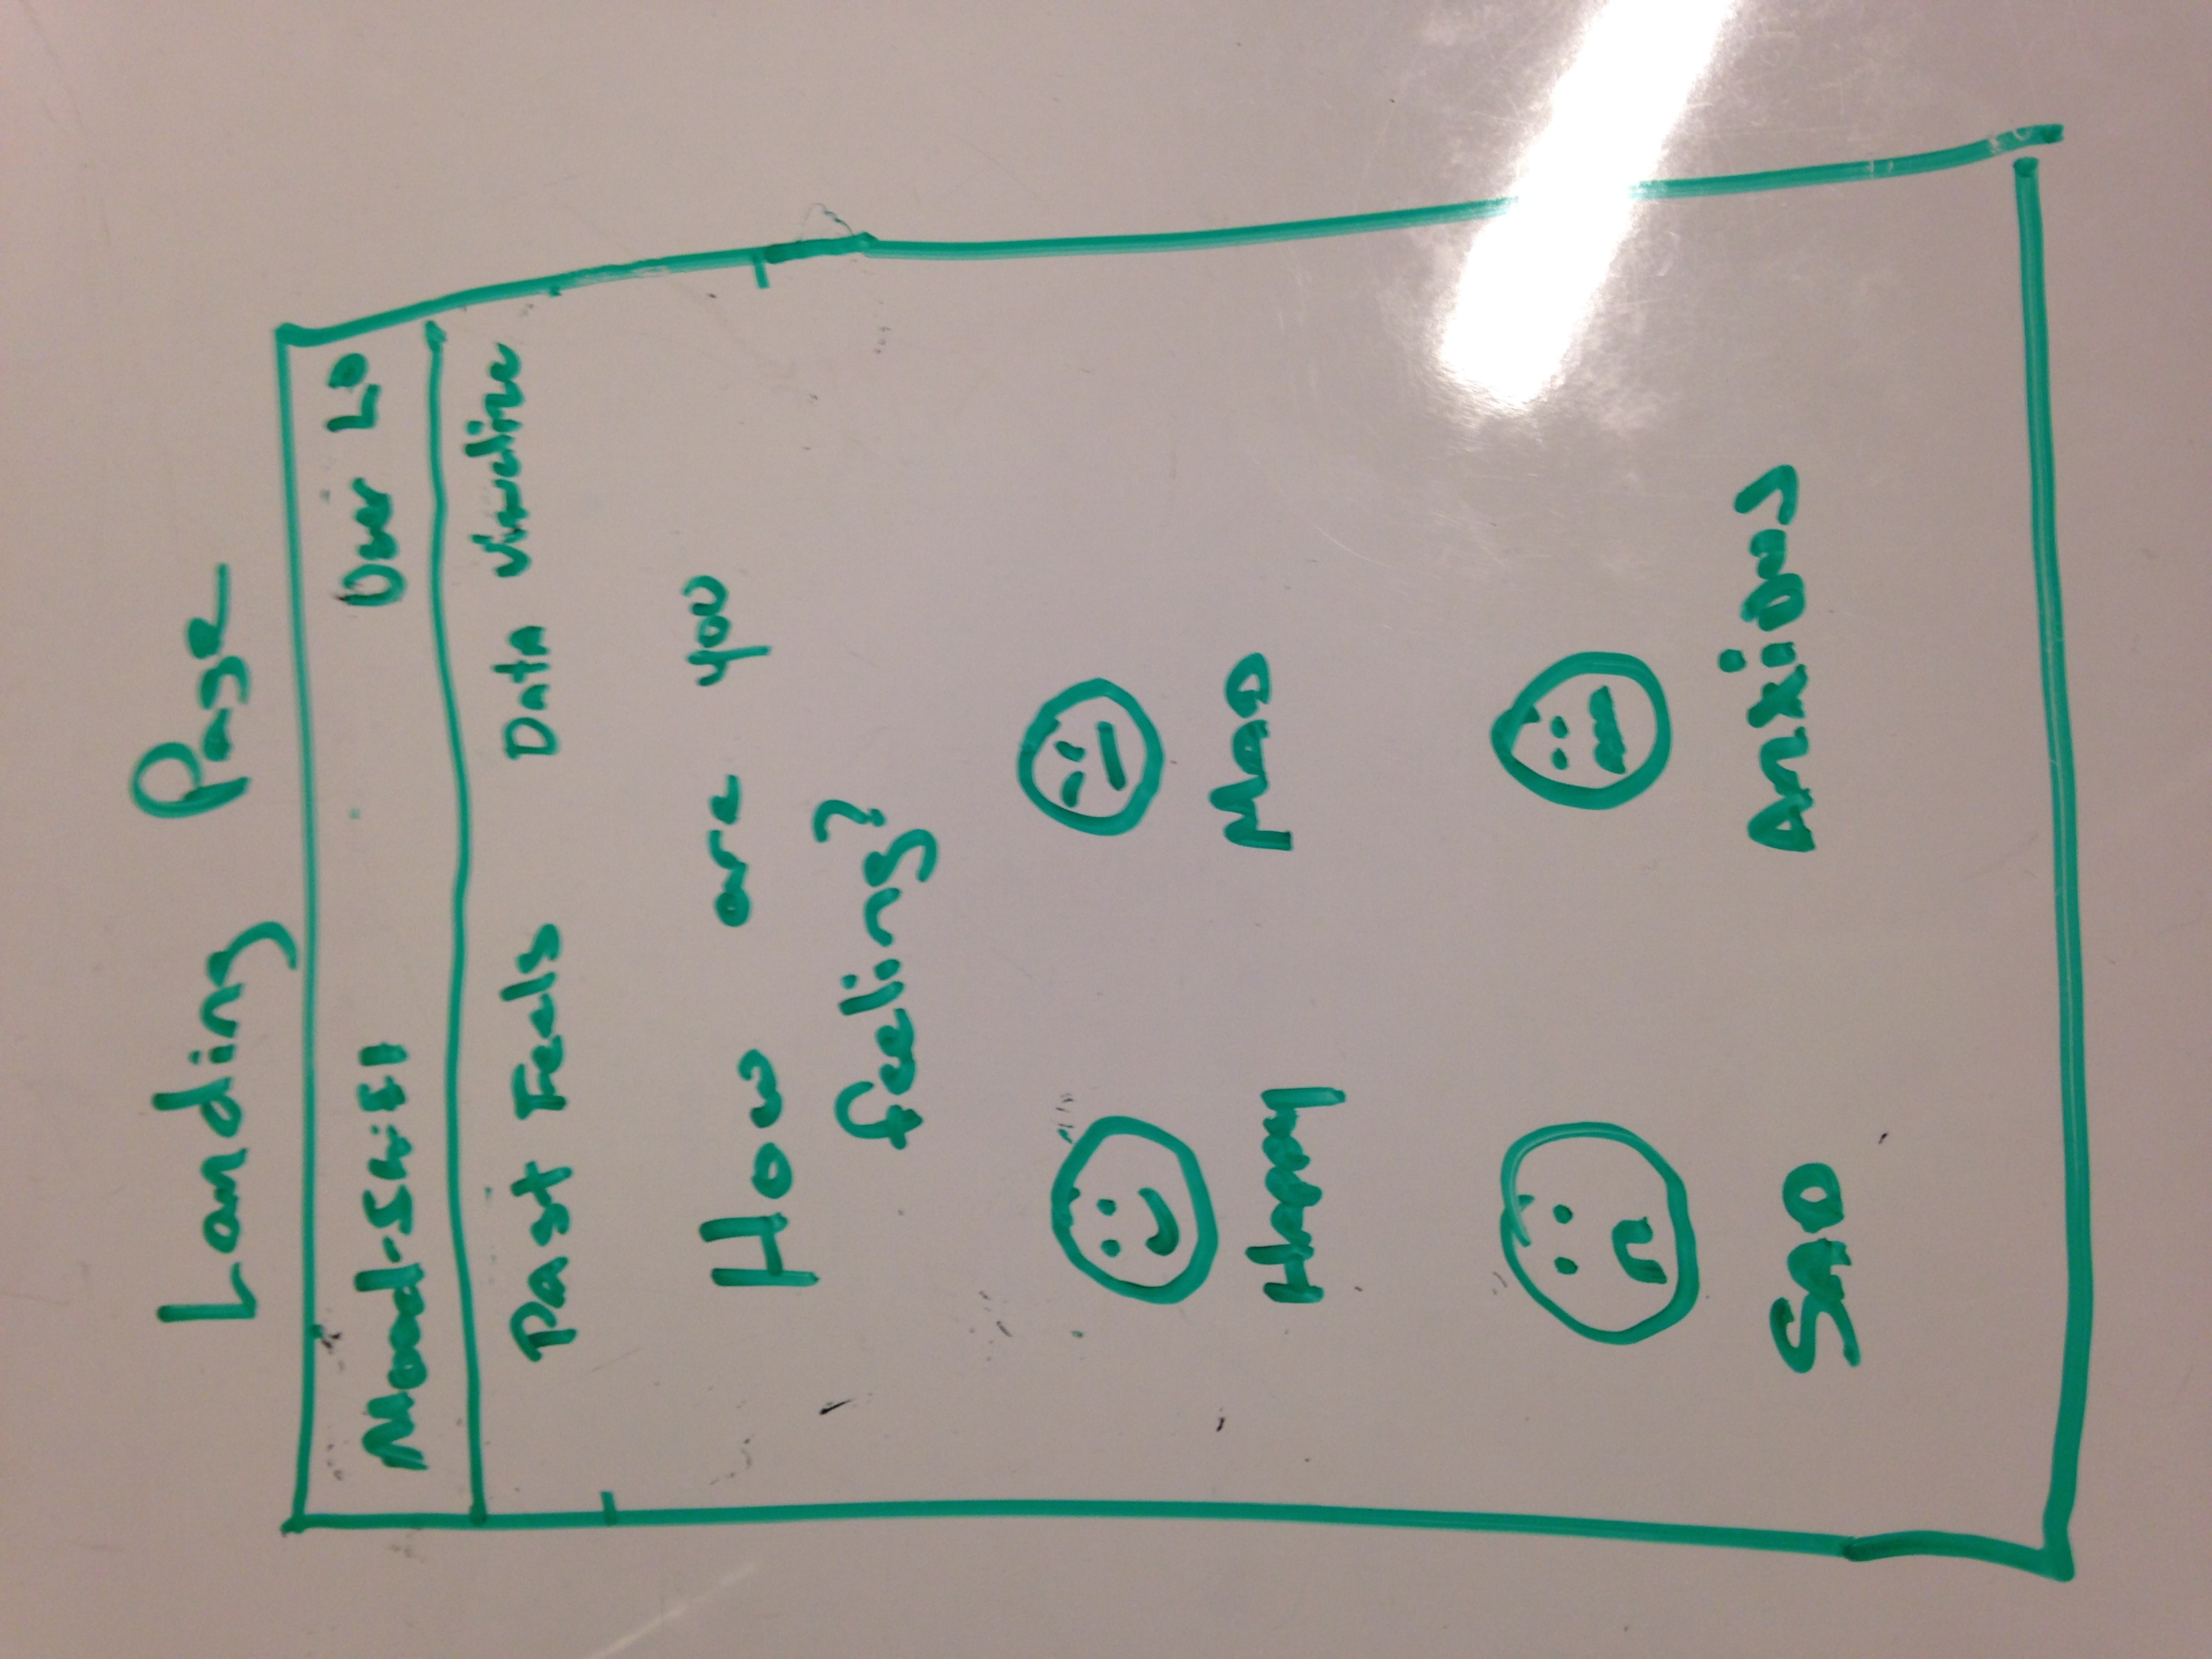 Landing Page
Mood-Shift User LO
Past Feels Data Visualize
How are you
feeling?
Happy MAD
SAD Anxious